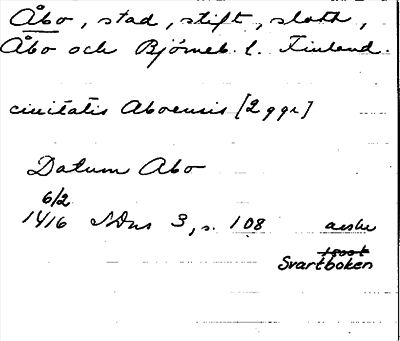 Åbo, stad, stift, slott,
Åbo och Björneb. l. Finland.
civitatis Aboensis [2 ggr]
Datum Abo
6/2
1416 SDns 3, s. 108 avskr
Svartboken